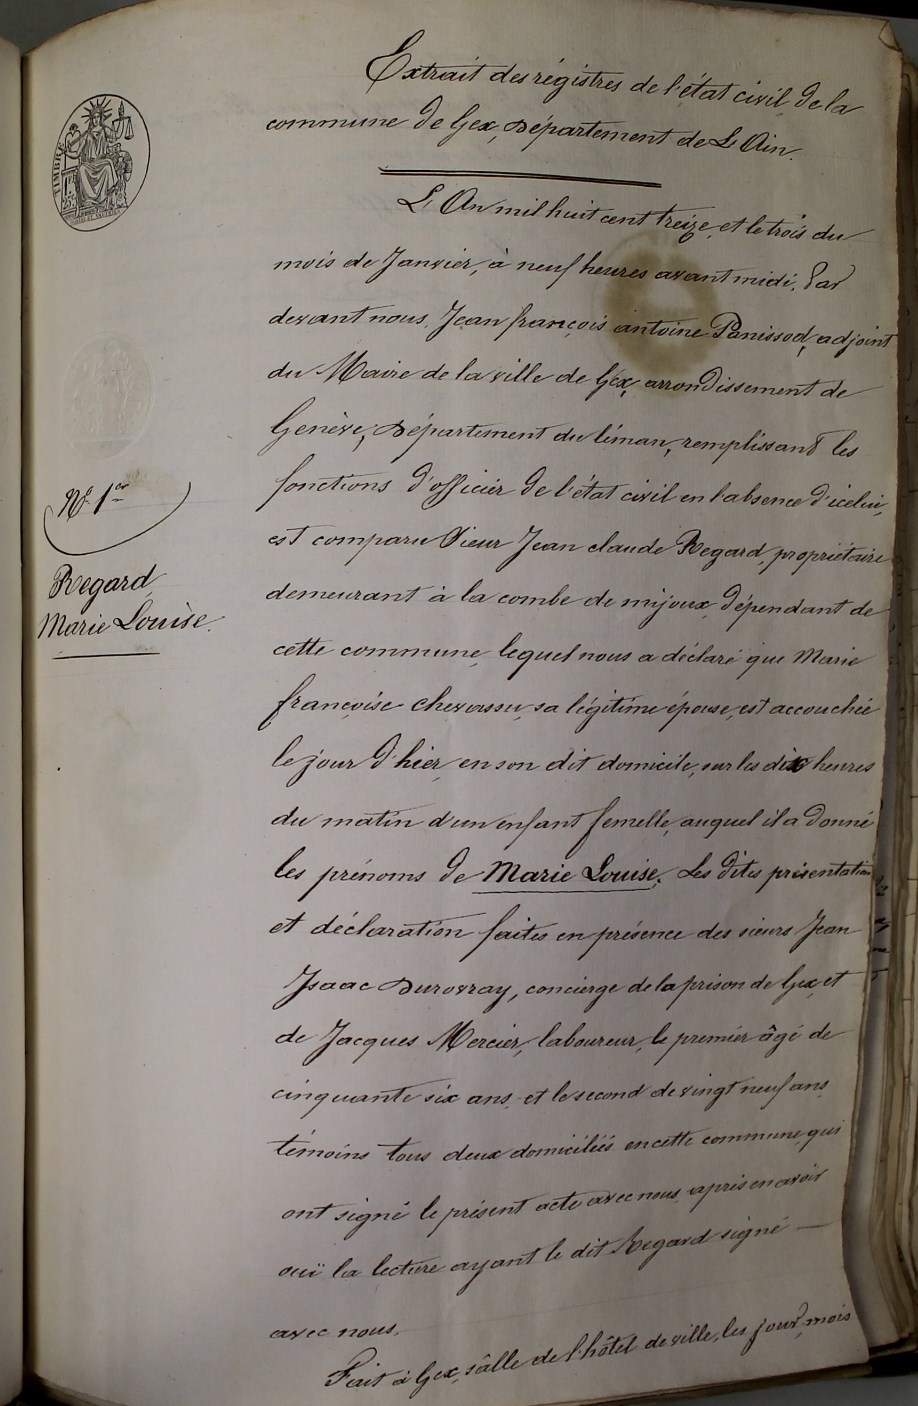 Extrait des régistres de l'état civil de la
commune de Gex, Département de L'Ain.
TIMBRE
L'An mil huit cent treize, et le trois du
mois de Janvier, à neuf heures avant midi, Par
devant nous Jean françois antoine Panissod, adjoint
du Maire de la ville de Gex, arrondissement de
Genève, Département du léman, remplissant les
fonctions d'officier de l'état civil en l'absence d'icelui,
est comparu Sieur Jean claude Regard, propriétaire
demeurant à la combe de mijoux, dépendant de
cette commune, lequel nous a déclaré que Marie
françoise chevassu, sa légitime épouse, est accouchée
le jour d'hier, en son dit domicile, sur les dix heures
du matin d'un enfant femelle, auquel il a donné
les prénoms de Marie Louise. Les dites présentation
et déclaration faites en présence des sieurs Jean
Isaac Durovray, concierge de la prison de Gex, et
de Jacques Mercier, laboureur, le premier âgé de
cinquante six ans et le second de vingt neuf ans
témoins tous deux domiciliés en cette commune, qui
ont signé le présent acte avec nous après en avoir
ouï la lecture ayant le dit Regard signé —
avec nous.
Fait à Gex, sâlle de l'hôtel de ville, les jour, mois
N° 1er
Regard
Marie Louise.